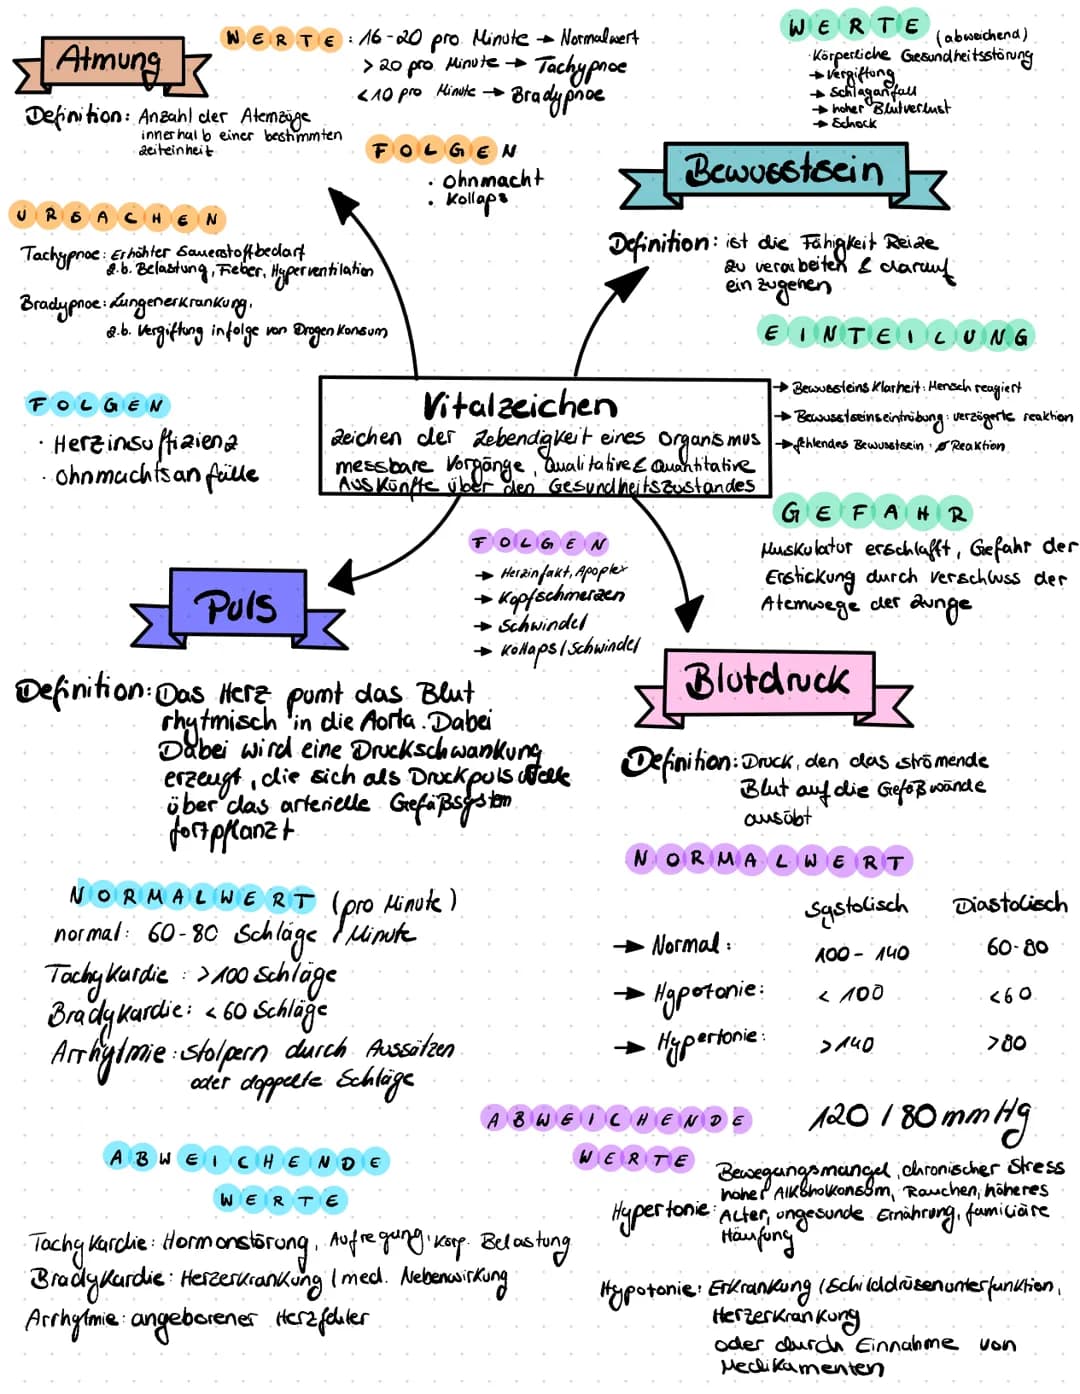 Atmung
WERTE: 16-20 pro Minute → Normalwert
> 20 pro Minute → Tachypnoe
< 10 pro Minute → Bradypnoe
Definition: Anzahl der Atemzüge
innerhalb einer bestimmten
Zeiteinheit
FOLGEN
· Ohnmacht
· Kollaps
URSACHEN
Tachypnoe: Erhöhter Sauerstoffbedarf
z.b. Belastung, Fieber, Hyperventilation
Bradypnoe: Lungenerkrankung,
z.b. Vergiftung infolge von Drogen Konsum
WERTE (abweichend)
· Körperliche Gesundheitsstörung
→ Vergiftung
→ Schlaganfall
→ hoher Blutverlust
→ Schock
Bewusstsein
Definition: ist die Fähigkeit Reize
zu verarbeiten & darauf
einzugehen
EINTEILUNG
→ Bewussteins Klarheit: Mensch reagiert
→ Bewusstseinseintrübung: verzögerte reaktion
→ fehlendes Bewusstsein: Ø Reaktion
GEFAHR
Muskulatur erschlafft, Gefahr der
Erstickung durch verschluss der
Atemwege der Zunge
Vitalzeichen
Zeichen der Lebendigkeit eines Organismus
messbare Vorgänge, Qualitative & Quantitative
Auskünfte über den Gesundheitszustandes
FOLGEN
· Herzinsuffizienz
· Ohnmachtsanfälle
Puls
Definition: Das Herz pumt das Blut
rhytmisch in die Aorta. Dabei
Dabei wird eine Druckschwankung
erzeugt, die sich als Druckpuls welle
über das arterielle Gefäßsystem
fortpflanzt
NORMALWERT (pro Minute)
normal: 60-80 Schläge / Minute
Tachykardie: >100 Schläge
Bradykardie: < 60 Schläge
Arrhytmie: stolpern durch Aussätzen
oder doppelte Schläge
ABWEICHENDE
WERTE
Tachykardie: Hormonstörung, Aufregung, körp. Belastung
Bradykardie: Herzerkrankung / med. Nebenwirkung
Arrhytmie: angeborener Herzfehler
FOLGEN
→ Herzinfakt, Apoplex
→ Kopfschmerzen
→ Schwindel
→ Kollaps / Schwindel
Blutdruck
Definition: Druck, den das strömende
Blut auf die Gefäßwände
ausübt
NORMALWERT
Systolisch Diastolisch
→ Normal: 100-140 60-80
→ Hypotonie: < 100 <60
→ Hypertonie: >140 >80
120 / 80 mmHg
ABWEICHENDE
WERTE
Hypertonie: Bewegungsmangel, chronischer Stress
hoher Alkoholkonsum, Rauchen, höheres
Alter, ungesunde Ernährung, familiäre
Häufung
Hypotonie: Erkrankung (Schilddrüsenunterfunktion,
Herzerkrankung
oder durch Einnahme von
Medikamenten